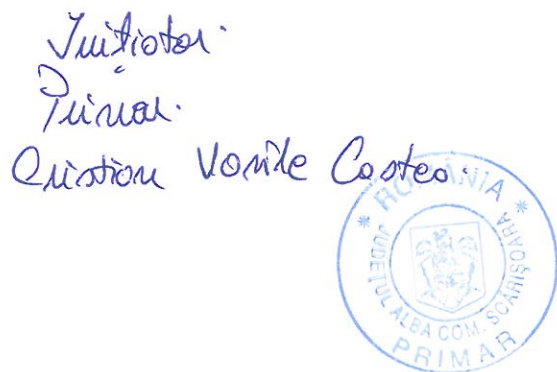 Inițiator.
Primar.
Cristian Vasile Costea.
* ROMÂNIA *
JUDEȚUL ALBA COM. SCĂRIȘOARA
PRIMAR